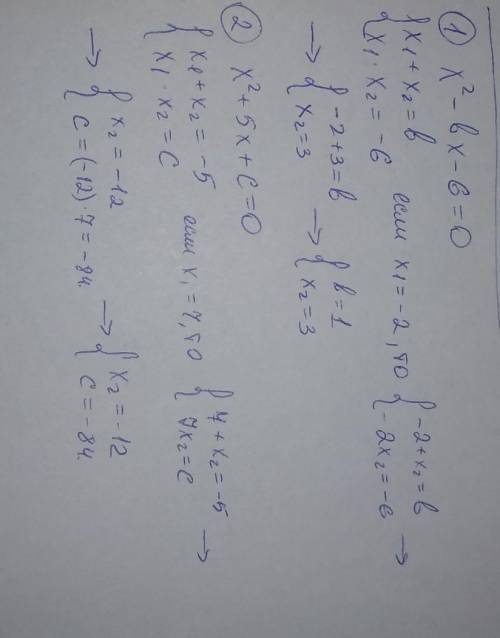 ① x² - bx - 6 = 0
{ x₁ + x₂ = b
{ x₁ · x₂ = -6 если x₁ = -2, то { -2 + x₂ = b
{ -2x₂ = -6 →
→ { -2 + 3 = b
{ x₂ = 3 → { b = 1
{ x₂ = 3
② x² + 5x + c = 0
{ x₁ + x₂ = -5
{ x₁ · x₂ = c если x₁ = 7, то { 7 + x₂ = -5
{ 7x₂ = c →
→ { x₂ = -12
{ c = (-12) · 7 = -84. → { x₂ = -12
{ c = -84.